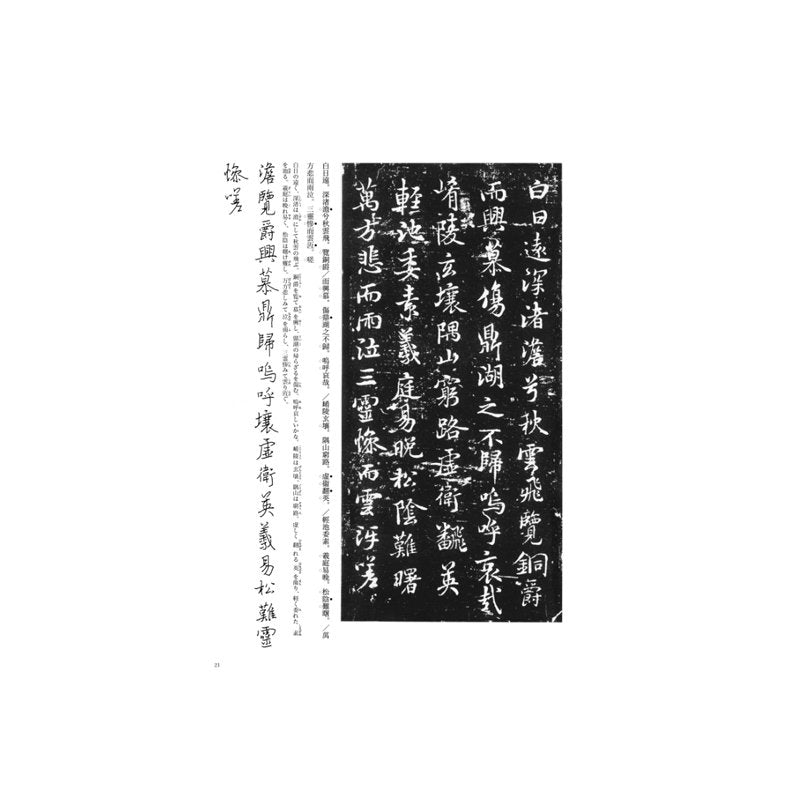 白日遠深渚澹兮秋雲飛覽銅爵
而興慕傷鼎湖之不歸嗚呼哀哉
崤陵玄壤隅山窮路虛衛飜英
輕池委素羲庭易晚松陰難曙
萬方悲而雨泣三靈慘而雲沍嗟
白日遠。深渚澹兮秋雲飛。覽銅爵／而興慕。傷鼎湖之不歸。嗚呼哀哉。／崤陵玄壤。隅山窮路。虛衛翻英。／輕池委素。羲庭易晚。松陰難曙。／萬
方悲而雨泣。三靈慘而雲沍。嗟
澹覽爵興慕鼎歸嗚呼壤虛衛英羲易松難靈
慘嗟
21